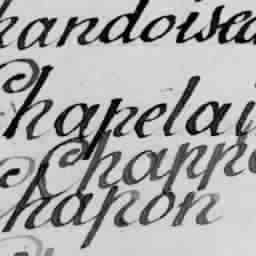 handoised
Chapelai
Chapp
Chapon